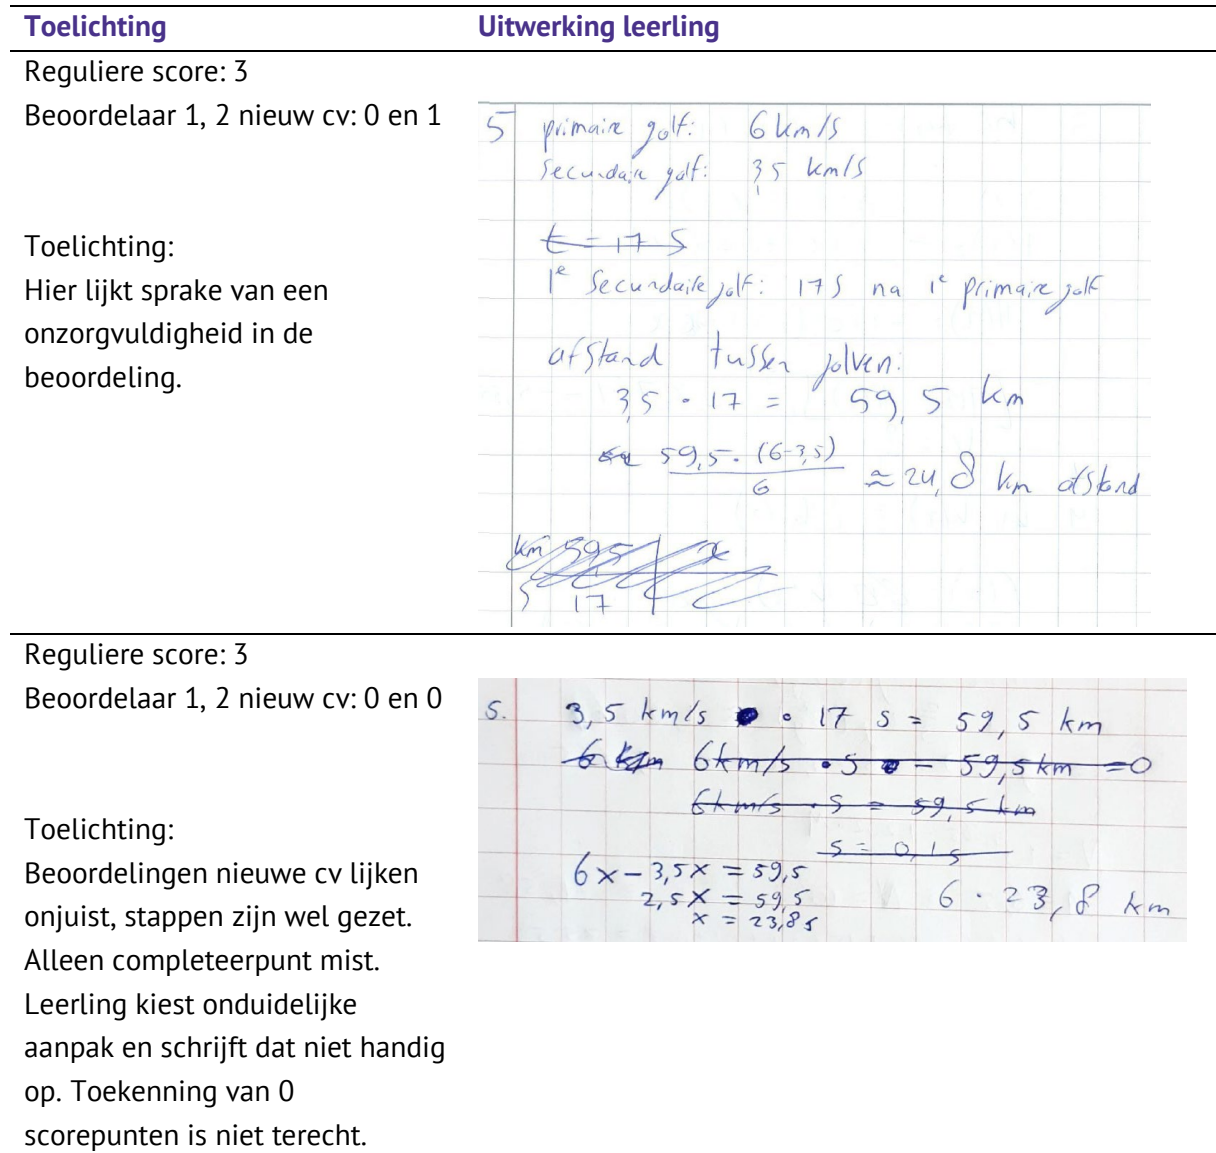 Toelichting Uitwerking leerling
Reguliere score: 3
Beoordelaar 1, 2 nieuw cv: 0 en 1
Toelichting:
Hier lijkt sprake van een
onzorgvuldigheid in de
beoordeling.
5 primaire golf: 6 km/s
Secundaire golf: 3,5 km/s
t = 17 s
1e Secundaire golf: 17 s na 1e primaire golf
afstand tussen golven:
3,5 · 17 = 59,5 km
59,5 · (6-3,5)
6
≈ 24,8 km afstand
km 59,5 x
s 17
Reguliere score: 3
Beoordelaar 1, 2 nieuw cv: 0 en 0
Toelichting:
Beoordelingen nieuwe cv lijken
onjuist, stappen zijn wel gezet.
Alleen completeerpunt mist.
Leerling kiest onduidelijke
aanpak en schrijft dat niet handig
op. Toekenning van 0
scorepunten is niet terecht.
5. 3,5 km/s · 17 s = 59,5 km
6 km 6km/s · s - 59,5 km = 0
6km/s · s = 59,5 km
s = 0,1s
6x - 3,5x = 59,5
2,5x = 59,5
x = 23,8s
6 · 23,8 km